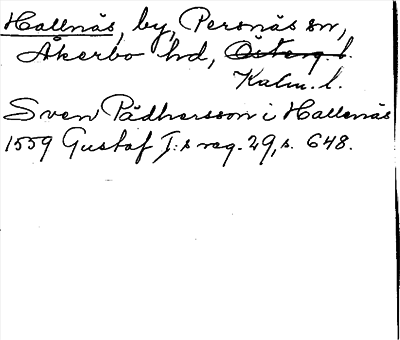 Hallnäs, by, Persnäs sn,
Åkerbo hd, Österg. l.
Kalm. l.
Sven Pädhersson i Hallenäs
1559 Gustaf I:s reg. 29, s. 648.